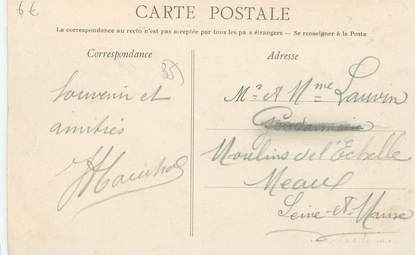 6€
CARTE POSTALE
La correspondance au recto n'est pas acceptée par tous les pays étrangers — Se renseigner à la Poste
Correspondance
Adresse
Souvenir et
amitiés
Mr et Mme
Moulins de l'Echelle
Meaux
Seine-et-Marne